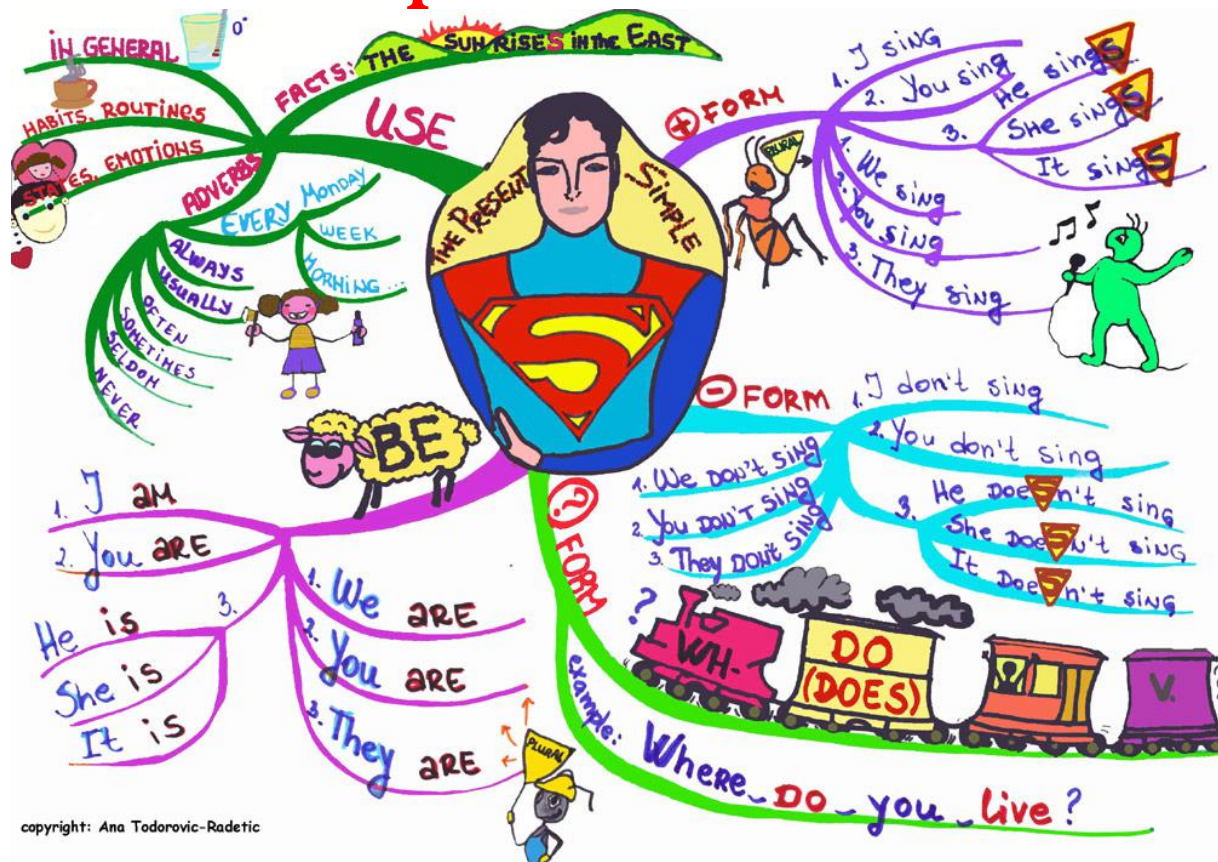 THE PRESENT SIMPLE
USE
FACTS: THE SUN RISES in the EAST
IN GENERAL
0°
HABITS, ROUTINES
STATES, EMOTIONS
ADVERBS
EVERY MONDAY
WEEK
MORNING ...
ALWAYS
USUALLY
OFTEN
SOMETIMES
SELDOM
NEVER
+ FORM
1. I sing
2. You sing
3.
He sings
She sings
It sings
PLURAL
1. We sing
2. You sing
3. They sing
- FORM
1. I don't sing
2. You don't sing
3.
He Doesn't sing
She Doesn't sing
It Doesn't sing
1. We DON'T SING
2. You DON'T SING
3. They DON'T SING
? FORM
?
WH-
DO
(DOES)
V.
example: Where DO you live?
BE
1. I am
2. You are
3.
He is
She is
It is
1. We are
2. You are
3. They are
PLURAL
copyright: Ana Todorovic-Radetic